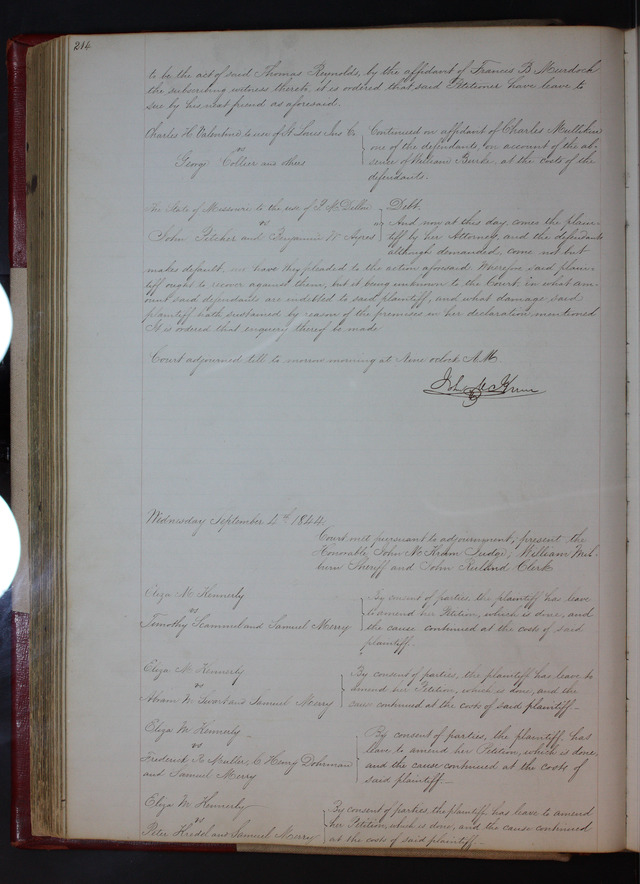 214
to be the act of said Thomas Reynolds, by the affidavit of Francis B Murdoch
the subscribing witness thereto, it is ordered that said Petitioner have leave to
sue by his next friend as aforesaid.
Charles H Valentine to use of St Louis Ins Co
vs
George Collier and others
Continued on affidavit of Charles Mullikin
one of the defendants, on account of the ab-
sence of William Burke, at the costs of the
defendants.
The State of Missouri to the use of P. McDillon
vs
John Pitcher and Benjamin W Ayres
Debt
And now at this day, comes the plain-
tiff by her Attorney, and the defendants
although demanded, come not but
makes default, nor have they pleaded to the action aforesaid Wherefore said plain-
tiff ought to recover against them, but it being unknown to the Court in what am-
ount said defendants are indebted to said plaintiff, and what damage said
plaintiff hath sustained by reason of the premises in her declaration mentioned
It is ordered that enquiry thereof be made
Court adjourned till to morrow morning at Nine oclock A.M.
John M Krum
Wednesday September 4th 1844.
Court met pursuant to adjournment, present the
Honorable John M Krum Judge, William Mil-
burn Sheriff and John Ruland Clerk
Eliza M Kennerly
vs
Timothy and Samuel Merry
By consent of parties, the plaintiff has leave
to amend her Petition, which is done, and
the cause continued at the costs of said
plaintiff.
Eliza M Kennerly
vs
and Samuel Merry
By consent of parties, the plaintiff has leave to
amend her Petition, which is done, and the
cause continued at the costs of said plaintiff
Eliza M Kennerly
vs
Frederick Muller, C Henry Dohrman
and Samuel Merry
By consent of parties, the plaintiff has
leave to amend her Petition, which is done,
and the cause continued at the costs of
said plaintiff
Eliza M Kennerly
vs
Peter and Samuel Merry
By consent of parties the plaintiff has leave to amend
her Petition, which is done, and the cause continued
at the costs of said plaintiff